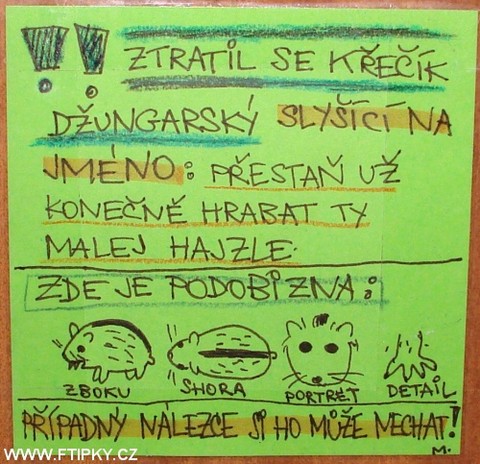 !! ZTRATIL SE KŘEČÍK
DŽUNGARSKÝ SLYŠÍCÍ NA
JMÉNO: PŘESTAŇ UŽ
KONEČNĚ HRABAT TY
MALEJ HAJZLE.
ZDE JE PODOBIZNA:
ZBOKU SHORA PORTRÉT DETAIL
PŘÍPADNÝ NÁLEZCE SI HO MŮŽE NECHAT!
M.
WWW.FTIPKY.CZ